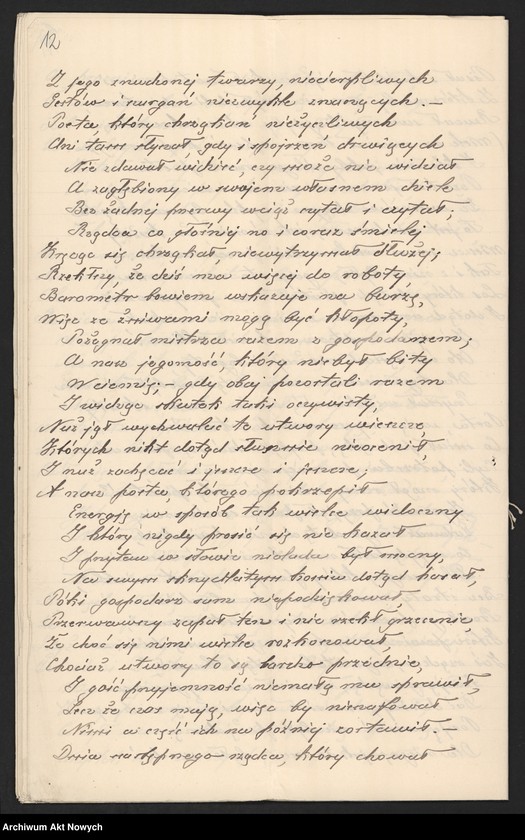 12
Z jego znudzonej twarzy, niecierpliwych
Gestów i wzgań niezwykle znaczących. —
Poeta który chrząkań nieżyczliwych
Ani tam słyszał, gdy i spojrzeń drwiących
Nie zdawał widzieć, czy może nie widział
A zagłębiony w swojem własnem dziele
Bez żadnej przerwy wciąż czytał i czytał;
Rządca co głośniej no i coraz śmielej
Kręcąc się chrząkał, niewytrzymał dłużej;
Rzekłszy, że dziś ma więcej do roboty,
Barometr bowiem wskazuje na burzę,
Więc ze żniwami mogą być kłopoty,
Pożegnał mistrza razem z gospodarzem;
A nasz jegomość, który niebył bity
W ciemię; — gdy obaj pozostali razem
I widząc skutek taki oczywisty,
Nuż jął wychwalać te utwory wieszcze,
Których nikt dotąd słusznie nieocenił,
I nuż zachęcać i jeszcze i jeszcze;
A nasz poeta, którego pokrzepił
Energję w sposób tak wielce widoczny
I który nigdy prosić się nie kazał
I przytem w słowie nielada był mocny,
Na swym skrzydlatym koniu dotąd hasał,
Póki gospodarz sam
Przerwawszy zapał ten i nie rzekł grzecznie,
Że choć się nimi wielce rozkoszował,
Chociaż utwory to są bardzo przednie,
I gość przyjemność niemałą mu sprawił,
Lecz że czas mają, więc by niezafował
Nimi a część ich na później zostawił. —
Dnia następnego rządca, który chował
Archiwum Akt Nowych